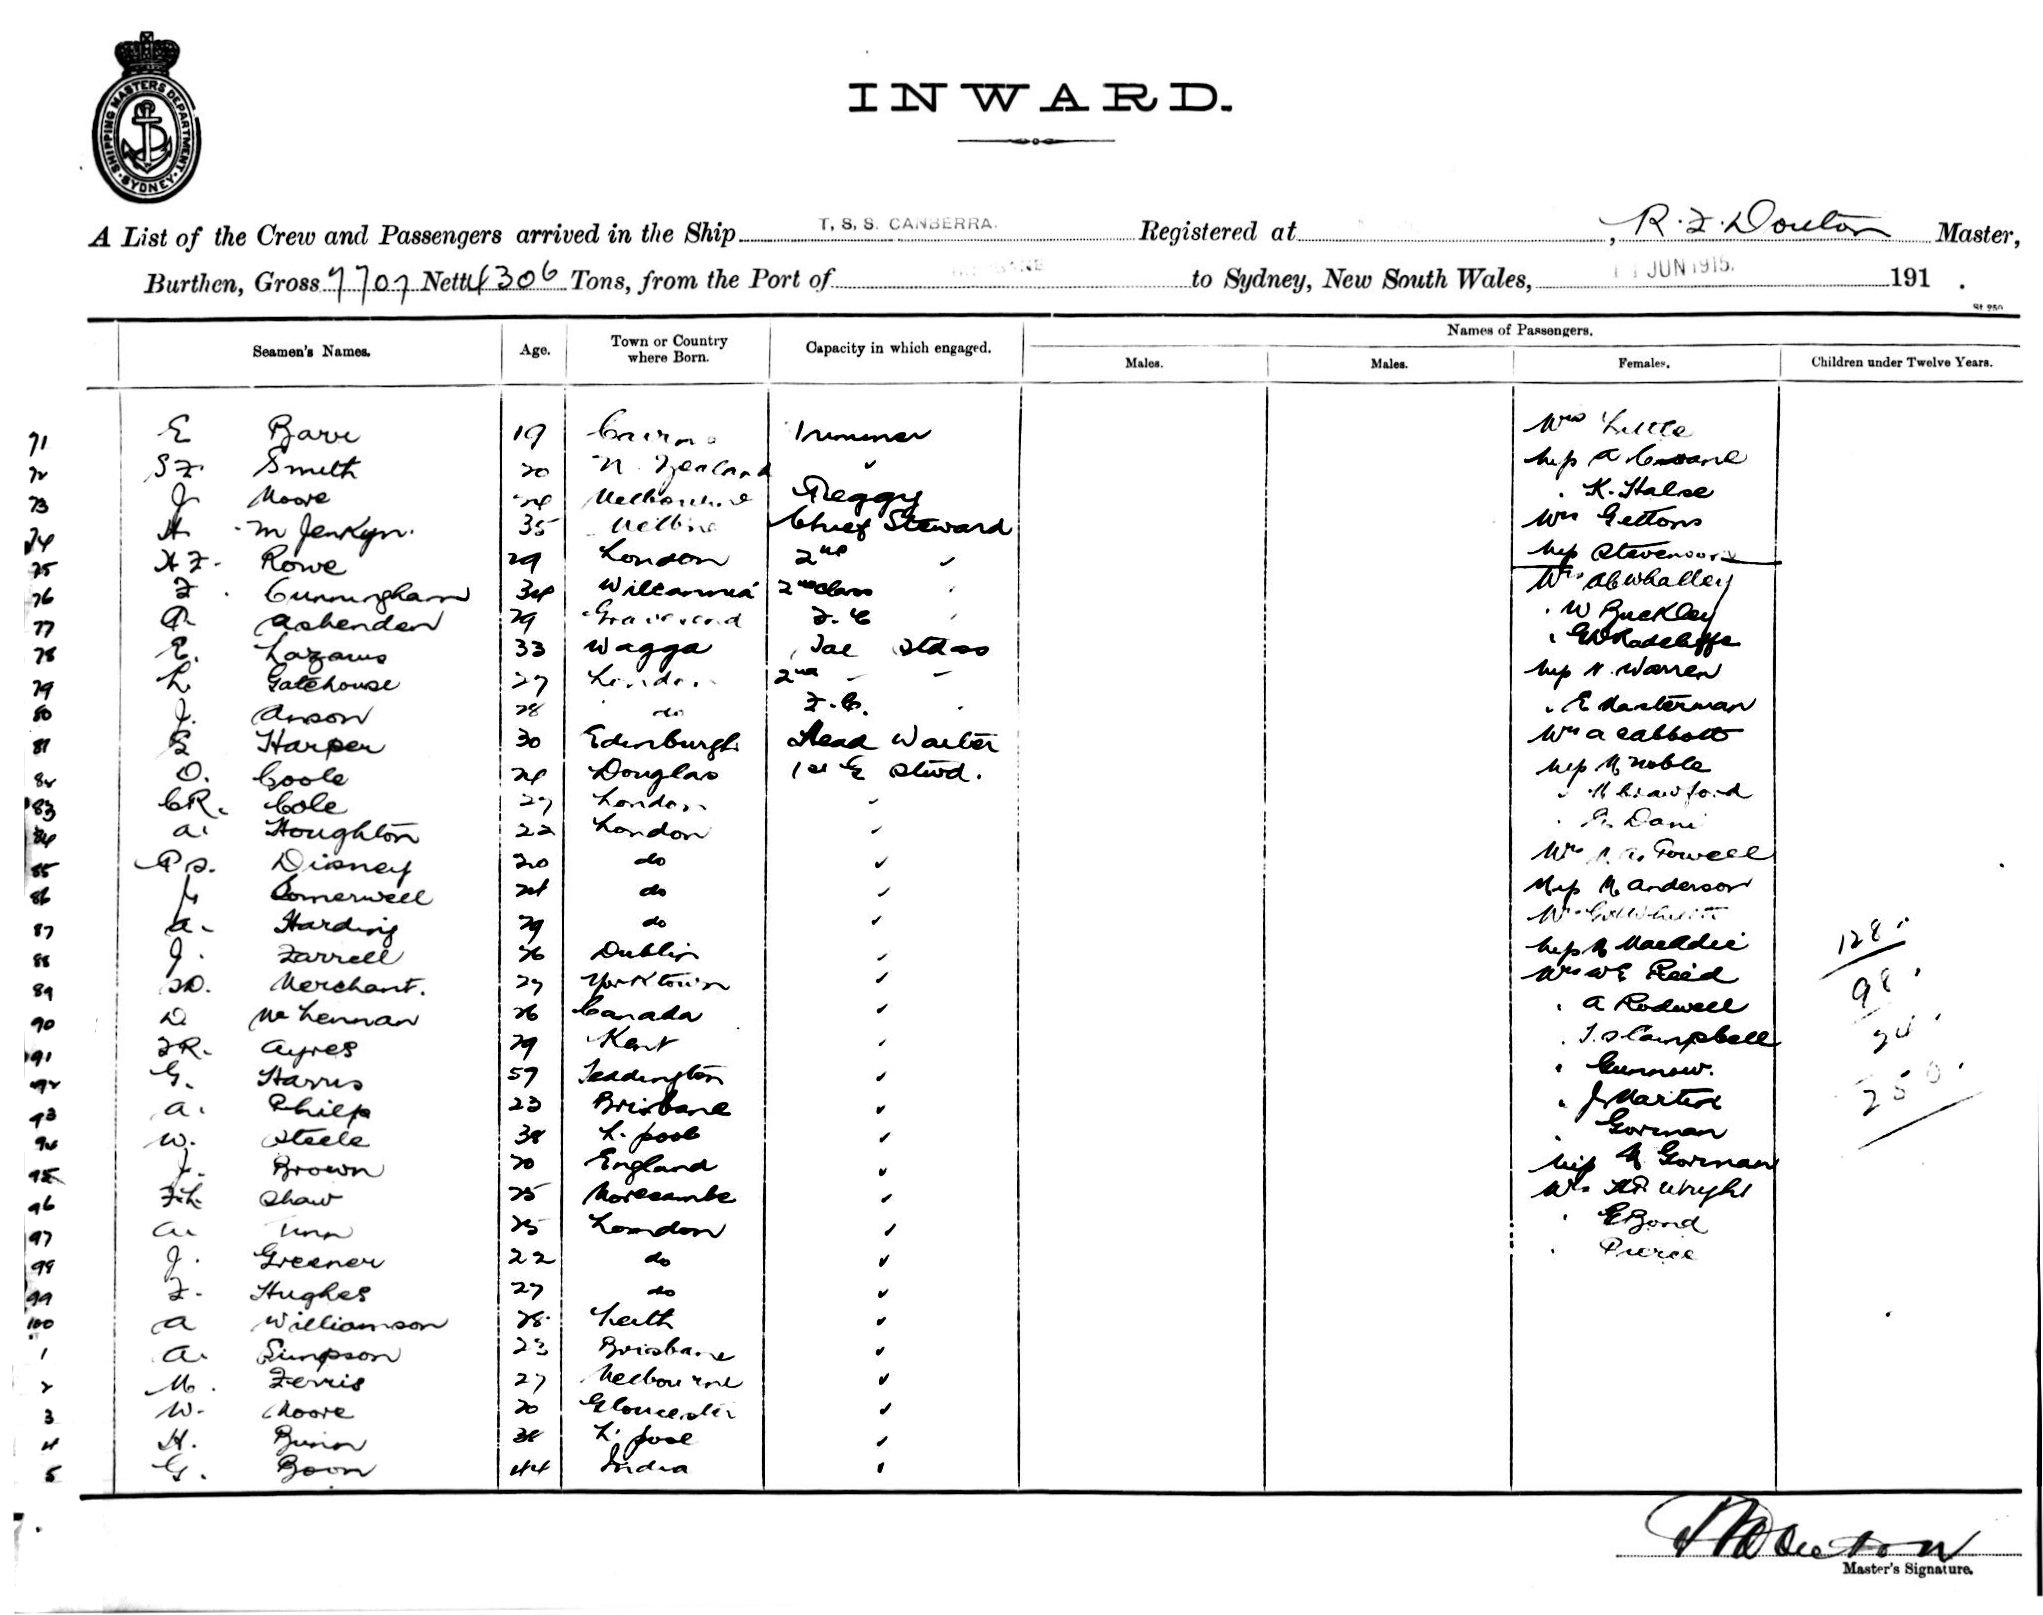 SHIPPING MASTERS DEPARTMENT. SYDNEY
INWARD.
A List of the Crew and Passengers arrived in the Ship T.S.S. CANBERRA. Registered at , R. F. Douton Master,
Burthen, Gross 7707 Nett 4306 Tons, from the Port of to Sydney, New South Wales, JUN 1915. 191 .
Names of Passengers.
Seamen's Names. Age. Town or Country where Born. Capacity in which engaged. Males. Males. Females. Children under Twelve Years.
71 E 19 Cairns Trimmer Mrs Little
72 S F. Smith 20 N. Zealand " Miss
73 J Moore 24 Melbourne Peggy " K. Halse
74 H. Jenkyn. 35 Melbne Chief Steward Mrs Gettons
75 H F. Rowe 29 London 2nd " Miss Stevenson
76 F. Cunningham 34 Wilcannia 2nd class " Mrs Whalley
77 Ashenden 29 Gravesend F. C " " W Buckley
78 E. Lazarus 33 Wagga Stdss " Radcliffe
79 L Gatehouse 27 London 2nd " " Miss Warren
80 J. Anson 28 do F. C. " " E Masterman
81 Harper 30 Edinburgh Head Waiter Mrs Abbott
82 O. Coole 24 Douglas Stwd. Miss M Noble
83 C R. Cole 27 London " " Crawford
84 A. Houghton 22 London " "
85 P S. Disney 20 do " Mrs Powell
86 Somerwell 24 do " Miss M Anderson
87 A. Harding 29 do " Mrs
88 J. Farrell 26 Dublin " Miss
89 Merchant. 27 Yorktown " Mrs W E Reid
90 D McLennan 26 Canada " " A Rodwell
91 F R. Ayres 29 Kent " " Campbell
92 G. Harris 57 Teddington " "
93 A. Philp 23 Brisbane " " J Martin
94 W. Steele 38 L. pool " " Gorman
95 J. Brown 20 England " Miss M Gorman
96 F. L. Shaw 25 Morecambe " Mrs Wright
97 A. 25 London " " E Bond
98 J. Greener 22 do " " Pierce
99 F. Hughes 27 do "
100 A Williamson 28 Leith "
1 A. Simpson 23 Brisbane "
2 M. Ferris 27 Melbourne "
3 W. Moore 20 Gloucester "
4 H. 38 L. pool "
5 G. Boon 44 India "
128.
98.
24.
250.
Douton
Master's Signature.